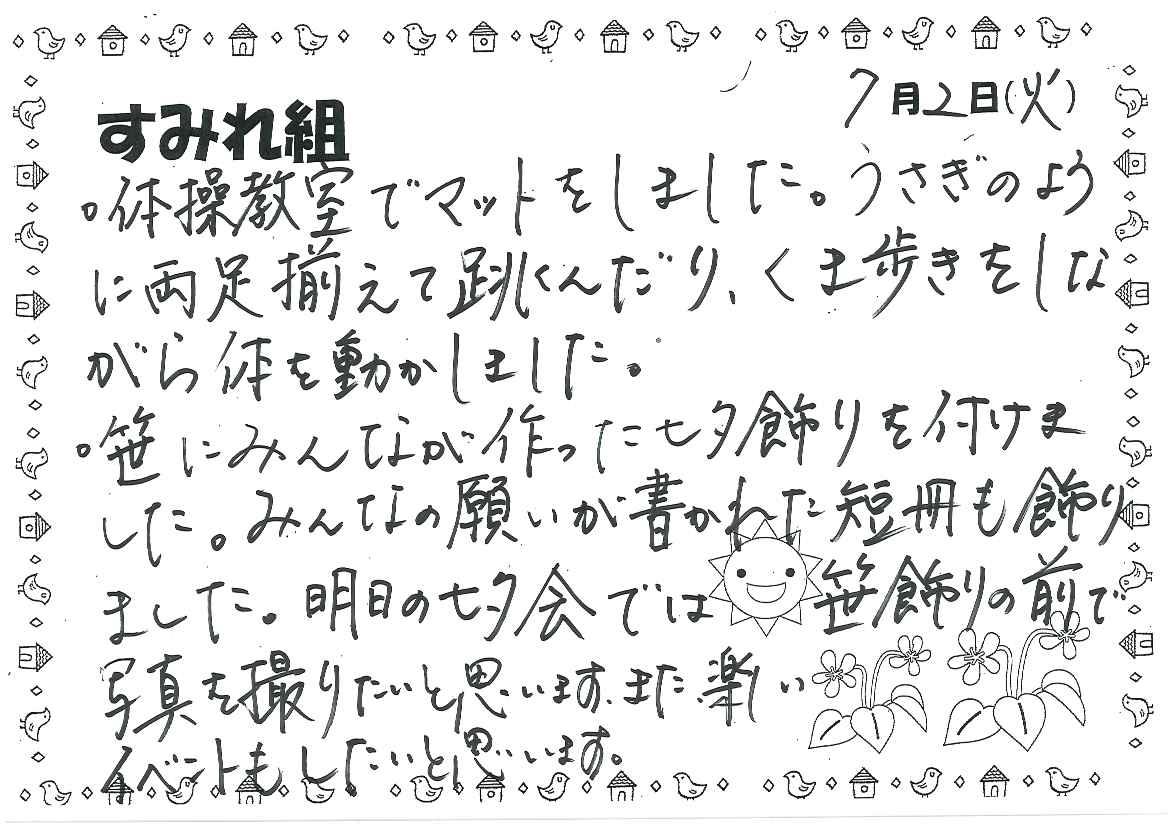 7月2日(火)
すみれ組
。体操教室でマットをしました。うさぎのよう
に両足揃えて跳んだり、くま歩きをしな
がら体を動かしました。
。笹にみんなが作った七夕飾りを付けま
した。みんなの願いが書かれた短冊も飾り
ました。明日の七夕会では笹飾りの前で
写真を撮りたいと思います。また楽しい
イベントもしたいと思います。